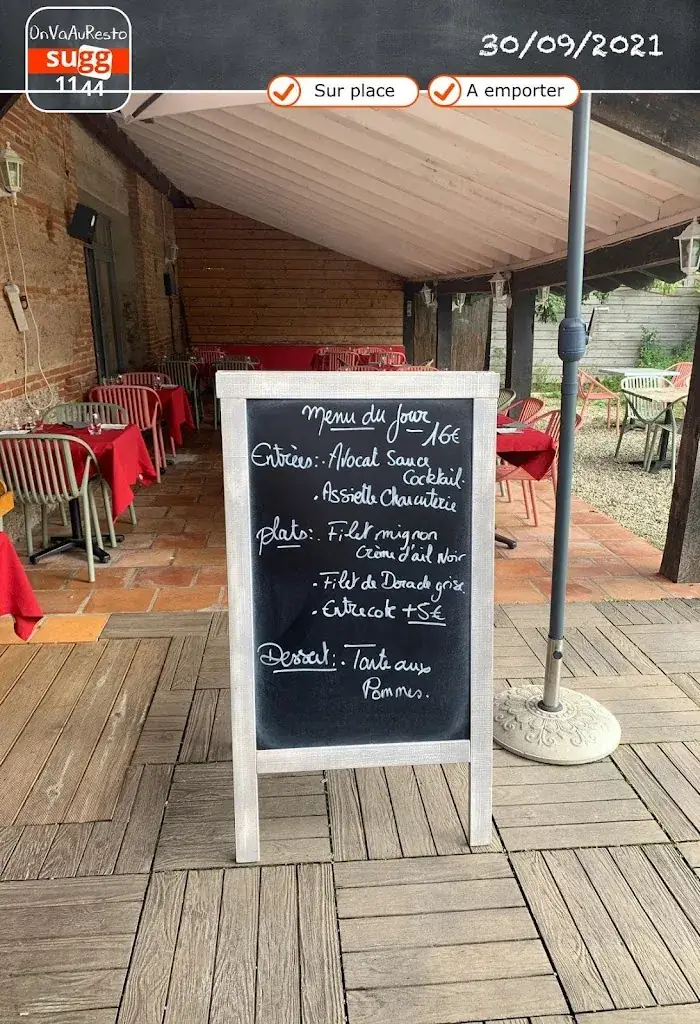 OnVaAuResto
sugg
1144
30/09/2021
Sur place
A emporter
Menu du Jour
16€
Entrées: . Avocat Sauce
Cocktail.
. Assiette Charcuterie
plats: . Filet mignon
Crème d'ail Noir
. Filet de Dorade grise
. Entrecote +5€
Dessert: . Tarte aux
Pommes.